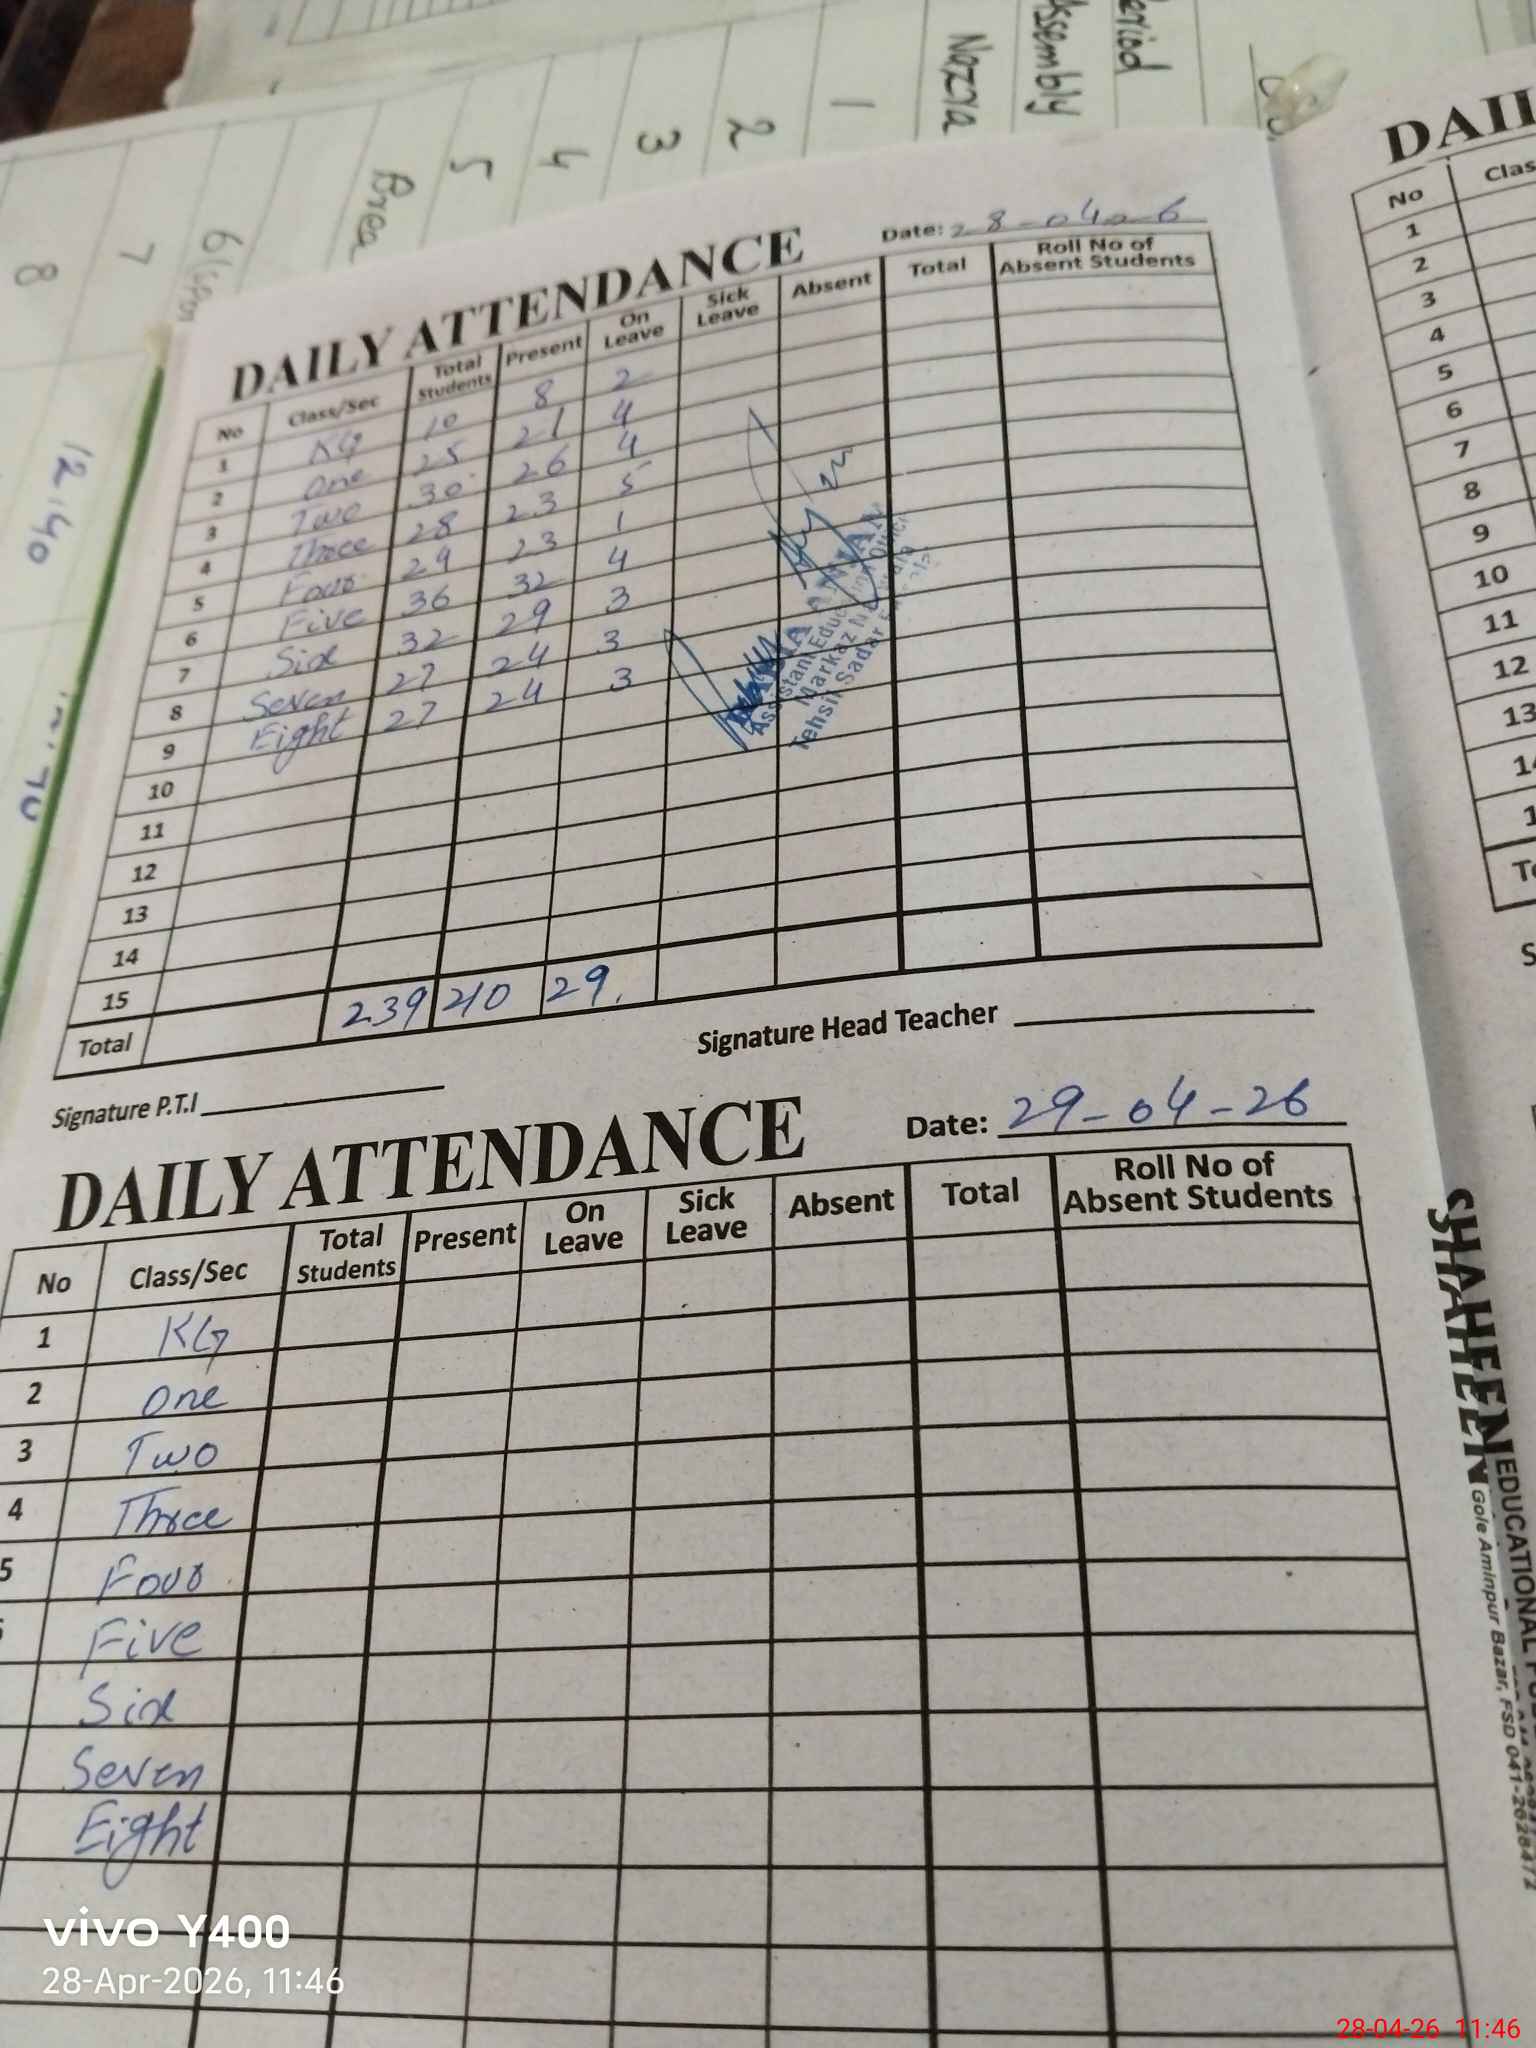 Period
Assembly
Nazra
1
2
3
4
5
Brea
6
7
8
12:40
DAILY ATTENDANCE
Date: 28-04-26
No Class/Sec Total Students Present On Leave Sick Leave Absent Total Roll No of Absent Students
1 KG 10 8 2
2 One 25 21 4
3 Two 30 26 4
4 Three 28 23 5
5 Four 29 23 1
6 Five 36 32 4
7 Six 32 29 3
8 Seven 27 24 3
9 Eight 27 24 3
10
11
12
13
14
15
Total 239 210 29
Assistant Education Officer
Markaz
Tehsil Sadar
Signature P.T.I
Signature Head Teacher
DAILY ATTENDANCE
Date: 29-04-26
No Class/Sec Total Students Present On Leave Sick Leave Absent Total Roll No of Absent Students
1 KG
2 One
3 Two
4 Three
5 Four
Five
Six
Seven
Eight
DAIL
No Clas
1
2
3
4
5
6
7
8
9
10
11
12
13
14
1
To
S
SHAHEEN
SHAHEEN
EDUCATIONAL
Gole Aminpur Bazar, FSD 041-2628472
vivo Y400
28-Apr-2026, 11:46
28-04-26 11:46